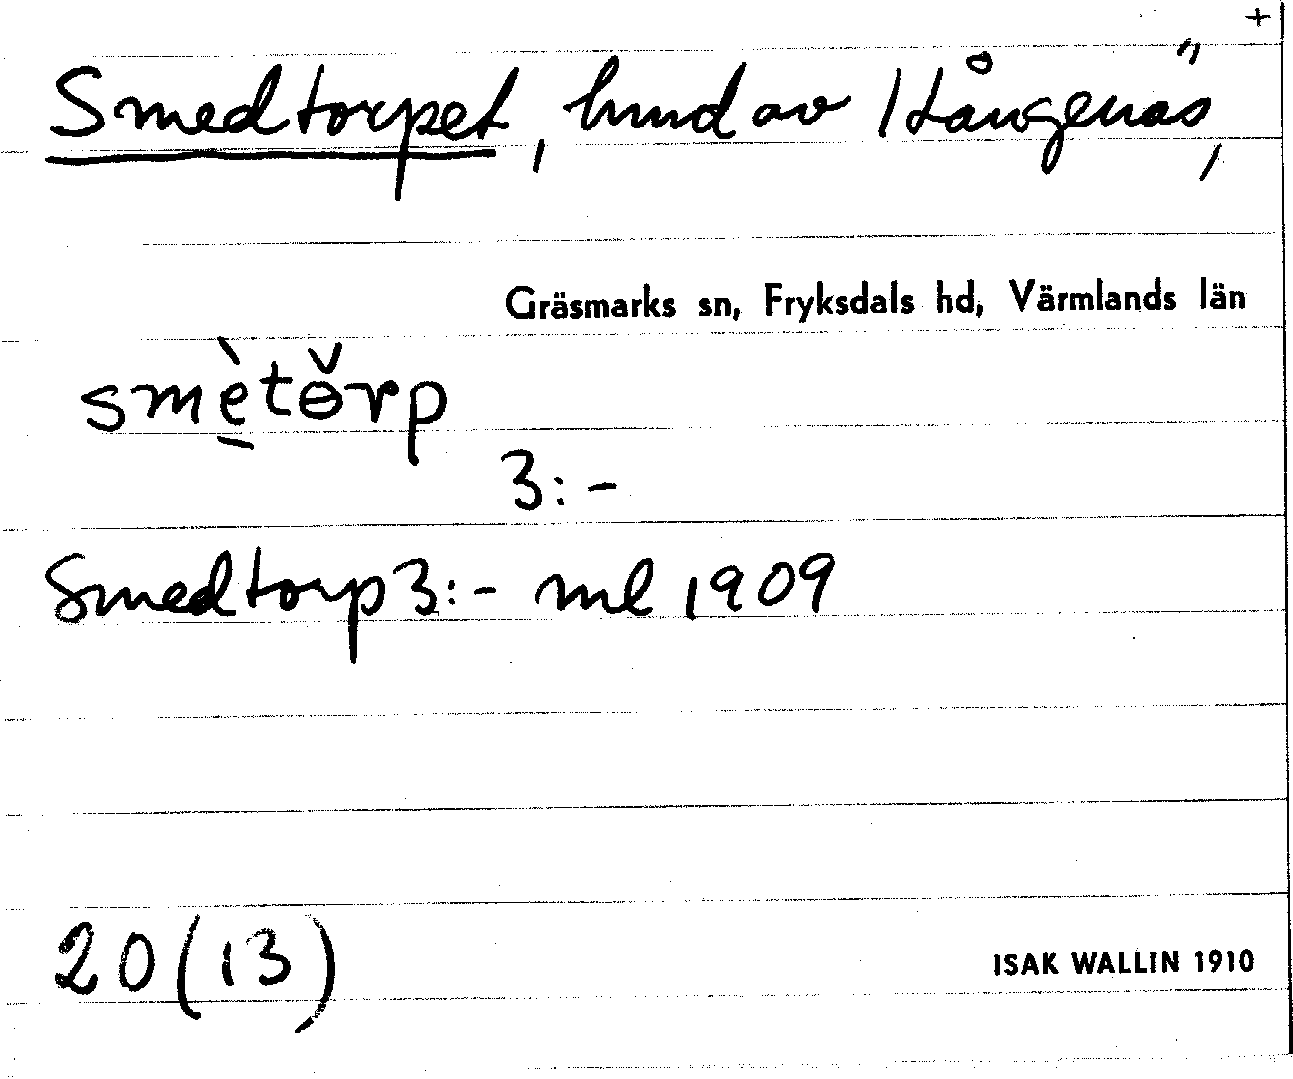 +
Smedtorpet, hmd av Hångenäs,
Gräsmarks sn, Fryksdals hd, Värmlands län
smè̠tɵ̌rp
3:-
Smedtorp 3:- ml 1909
20 (13)
ISAK WALLIN 1910